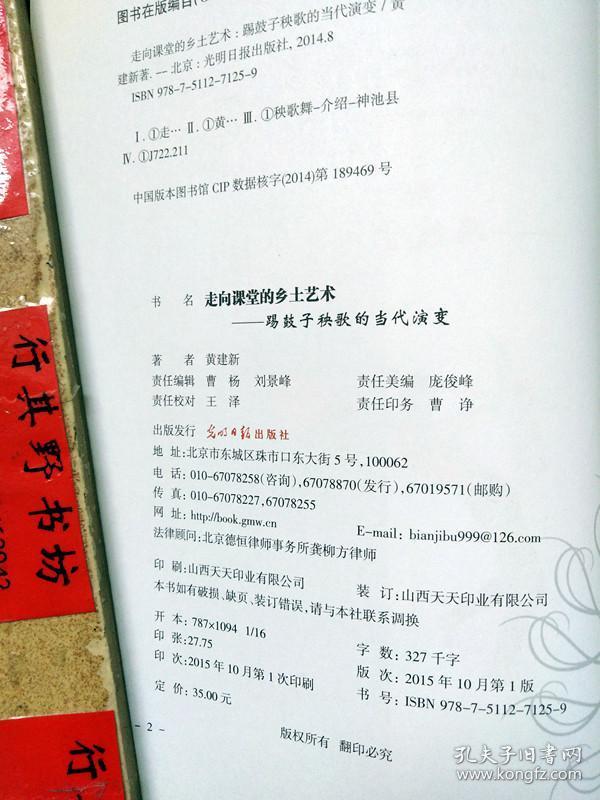 图书在版编目(C
走向课堂的乡土艺术：踢鼓子秧歌的当代演变 / 黄
建新著. — 北京：光明日报出版社, 2014.8
ISBN 978-7-5112-7125-9
Ⅰ. ①走… Ⅱ. ①黄… Ⅲ. ①秧歌舞-介绍-神池县
Ⅳ. ①J722.211
中国版本图书馆 CIP 数据核字(2014)第 189469 号
书 名 走向课堂的乡土艺术
——踢鼓子秧歌的当代演变
著 者 黄建新
责任编辑 曹 杨 刘景峰 责任美编 庞俊峰
责任校对 王 泽 责任印务 曹 诤
出版发行 光明日报出版社
地 址:北京市东城区珠市口东大街 5 号,100062
电 话: 010-67078258(咨询),67078870(发行),67019571(邮购)
传 真: 010-67078227,67078255
网 址: http://book.gmw.cn E-mail: bianjibu999@126.com
法律顾问:北京德恒律师事务所龚柳方律师
印 刷:山西天天印业有限公司 装 订:山西天天印业有限公司
本书如有破损、缺页、装订错误,请与本社联系调换
开 本: 787×1094 1/16
印 张: 27.75 字 数: 327 千字
印 次: 2015 年 10 月第 1 次印刷 版 次: 2015 年 10 月第 1 版
定 价: 35.00 元 书 号: ISBN 978-7-5112-7125-9
- 2 -
版权所有 翻印必究
行其野书坊
行
孔夫子旧书网
www.kongfz.com